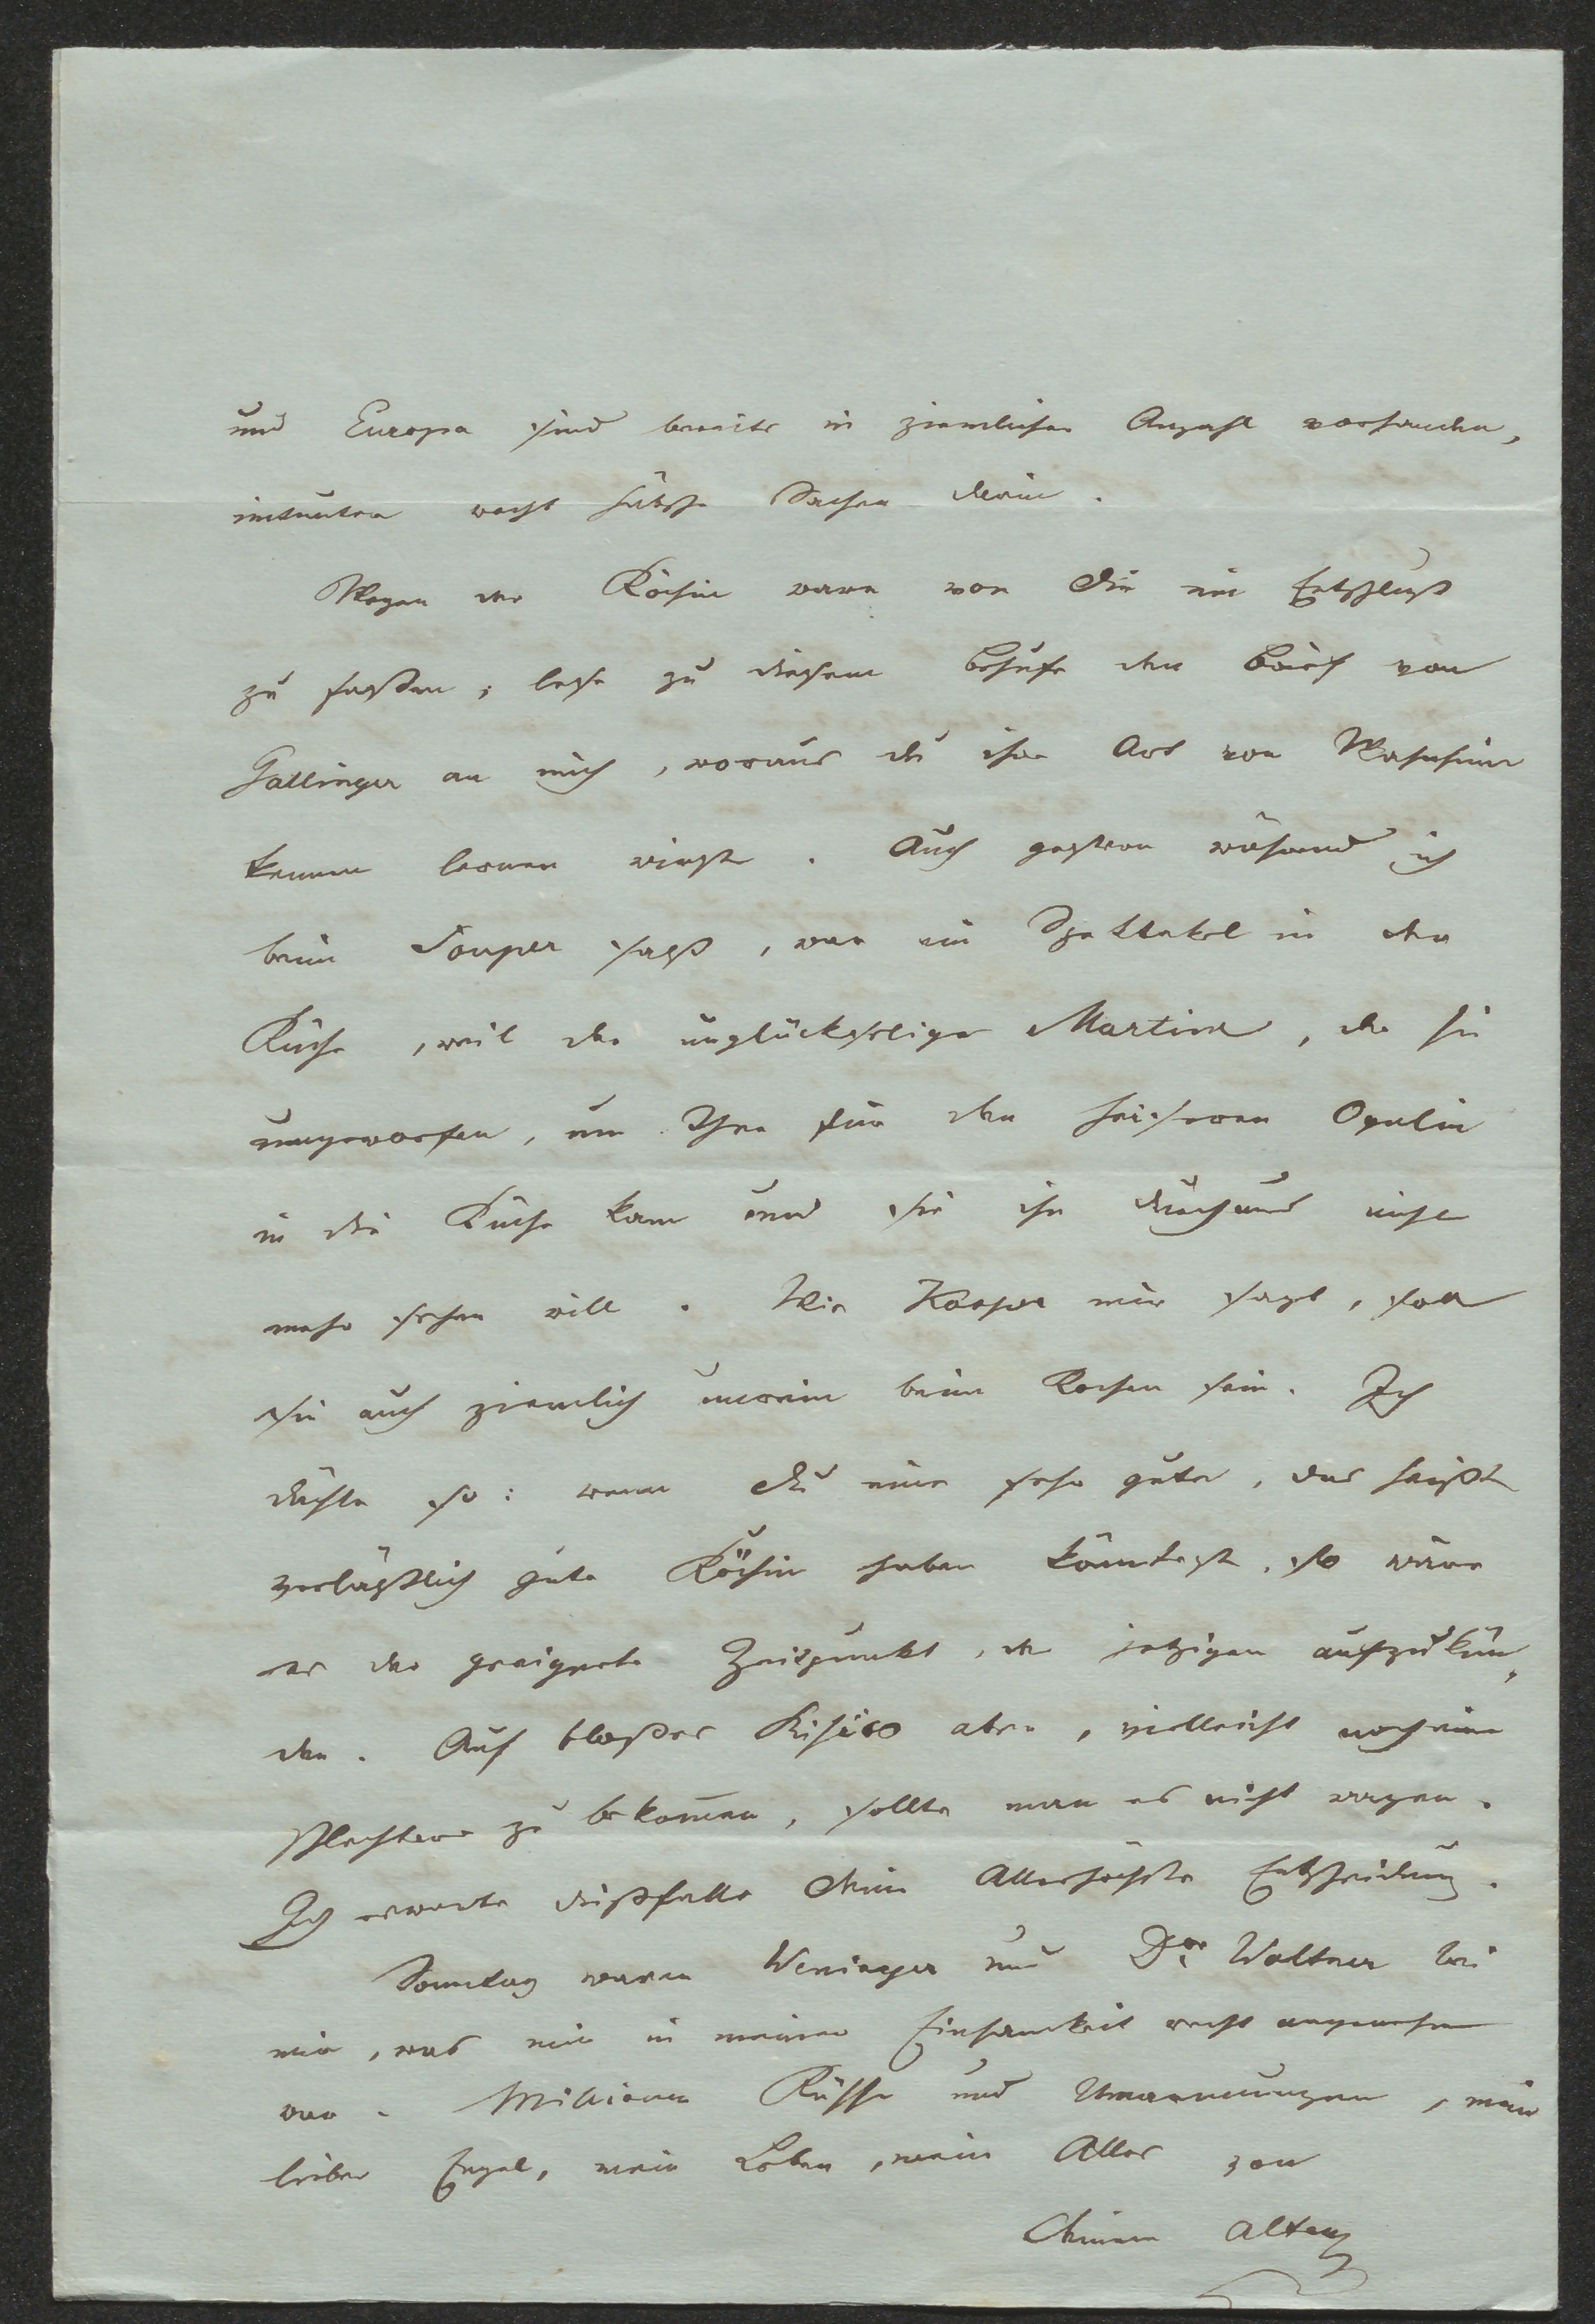 und Europa sind bereits in ziemlicher Anzahl vorhanden,
mitunter recht hübsche Sachen darin.
Wegen der Köchin wäre von Dir ein Entschluß
zu faßen; lese zu diesem Behufe den Brief von
Gallinger an mich, woraus du ihre Art von Wahnsinn
kennen lernen wirst. Auch gestern während ich
beim Souper saß, war ein Spektakel in der
Küche, weil der unglückselige Martin, der sie
, um Thee für den heiseren
in die Küche kam und sie ihn durchaus nicht
mehr sehen will. Wie Kaspar mir sagt, soll
sie auch ziemlich unrein beim Kochen sein. Ich
dächte so: wenn Du eine sehr gute, das heißt
verläßlich gute Köchin haben könntest, so wäre
es der geeignete Zeitpunkt, der jetzigen aufzukün„
den. Auf bloßes Risico aber, vielleicht noch eine
schlechtere zu bekom̅en, sollte man es nicht wagen.
Ich erwarte dießfalls Deine Allerhöchste Entscheidung.
Sonntag waren Weninger und Dor. Waltner bei
mir, was mir in meiner Einsamkeit recht angenehm
war. Millionen Küsse und Umarmungen, mein
lieber Engel, mein Leben, mein Alles von
Deinem Alten